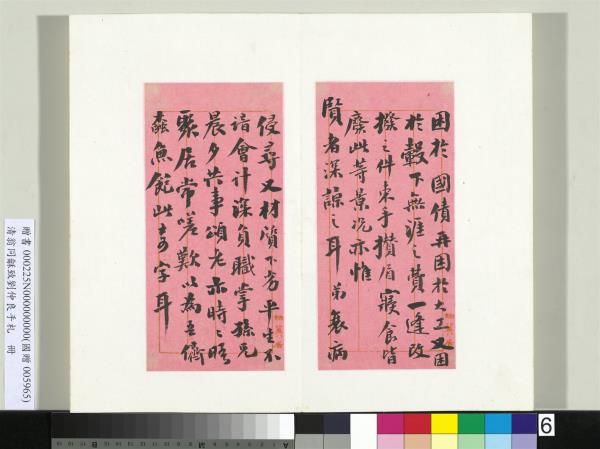 困於國債再困於大工又困
於轂下無涯之費一逢改
撥之件束手攢眉寢食皆
廢此等景况亦惟
賢者深諒之耳弟衰病
侵尋又材質下劣平生不
諳會計深負職掌孫兄
晨夕共事頌老亦時〻晤
聚居常嗟歎以為吾儕
蠹魚飽此奇字耳
贈書 000225N000000000(國贈 005965)
清翁同龢致劉仲良手札 冊
6